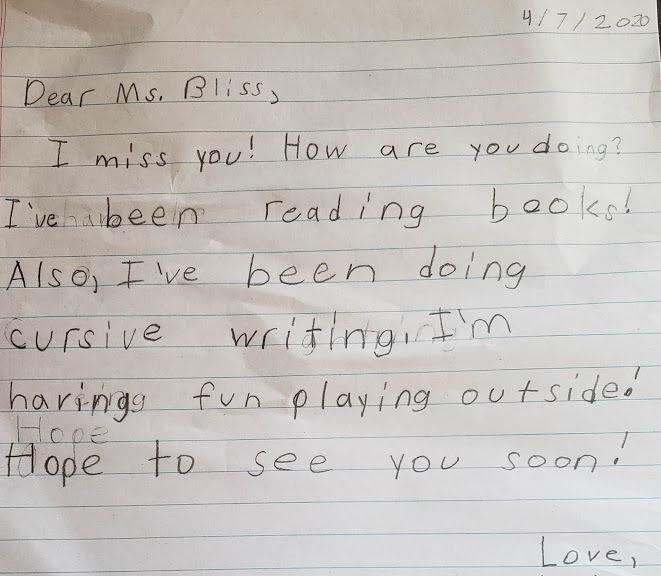 4/7/2020
Dear Ms. Bliss,
I miss you! How are you doing?
I've been reading books!
Also, I've been doing
cursive writing. I'm
having fun playing outside!
Hope
Hope to see you soon!
Love,